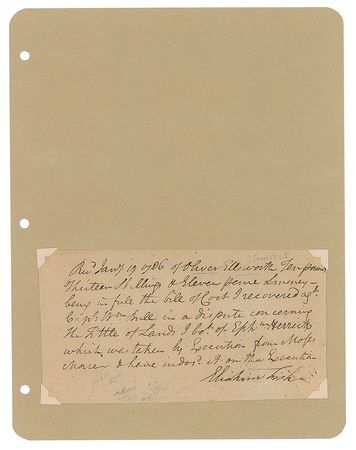 Rec'd Jan'y 19 1786 of Oliver Ellsworth Ten pound
Thirteen Shillings & Eleven pence Money
being in full the bill of Cost I recovered ag't
Cap't Wm Bull in a dispute concerning
the Tittle of Land I bo't of Eph'm Herrick
which was taken by Execution from Moses
& have indors'd it on the Execution
Elisha